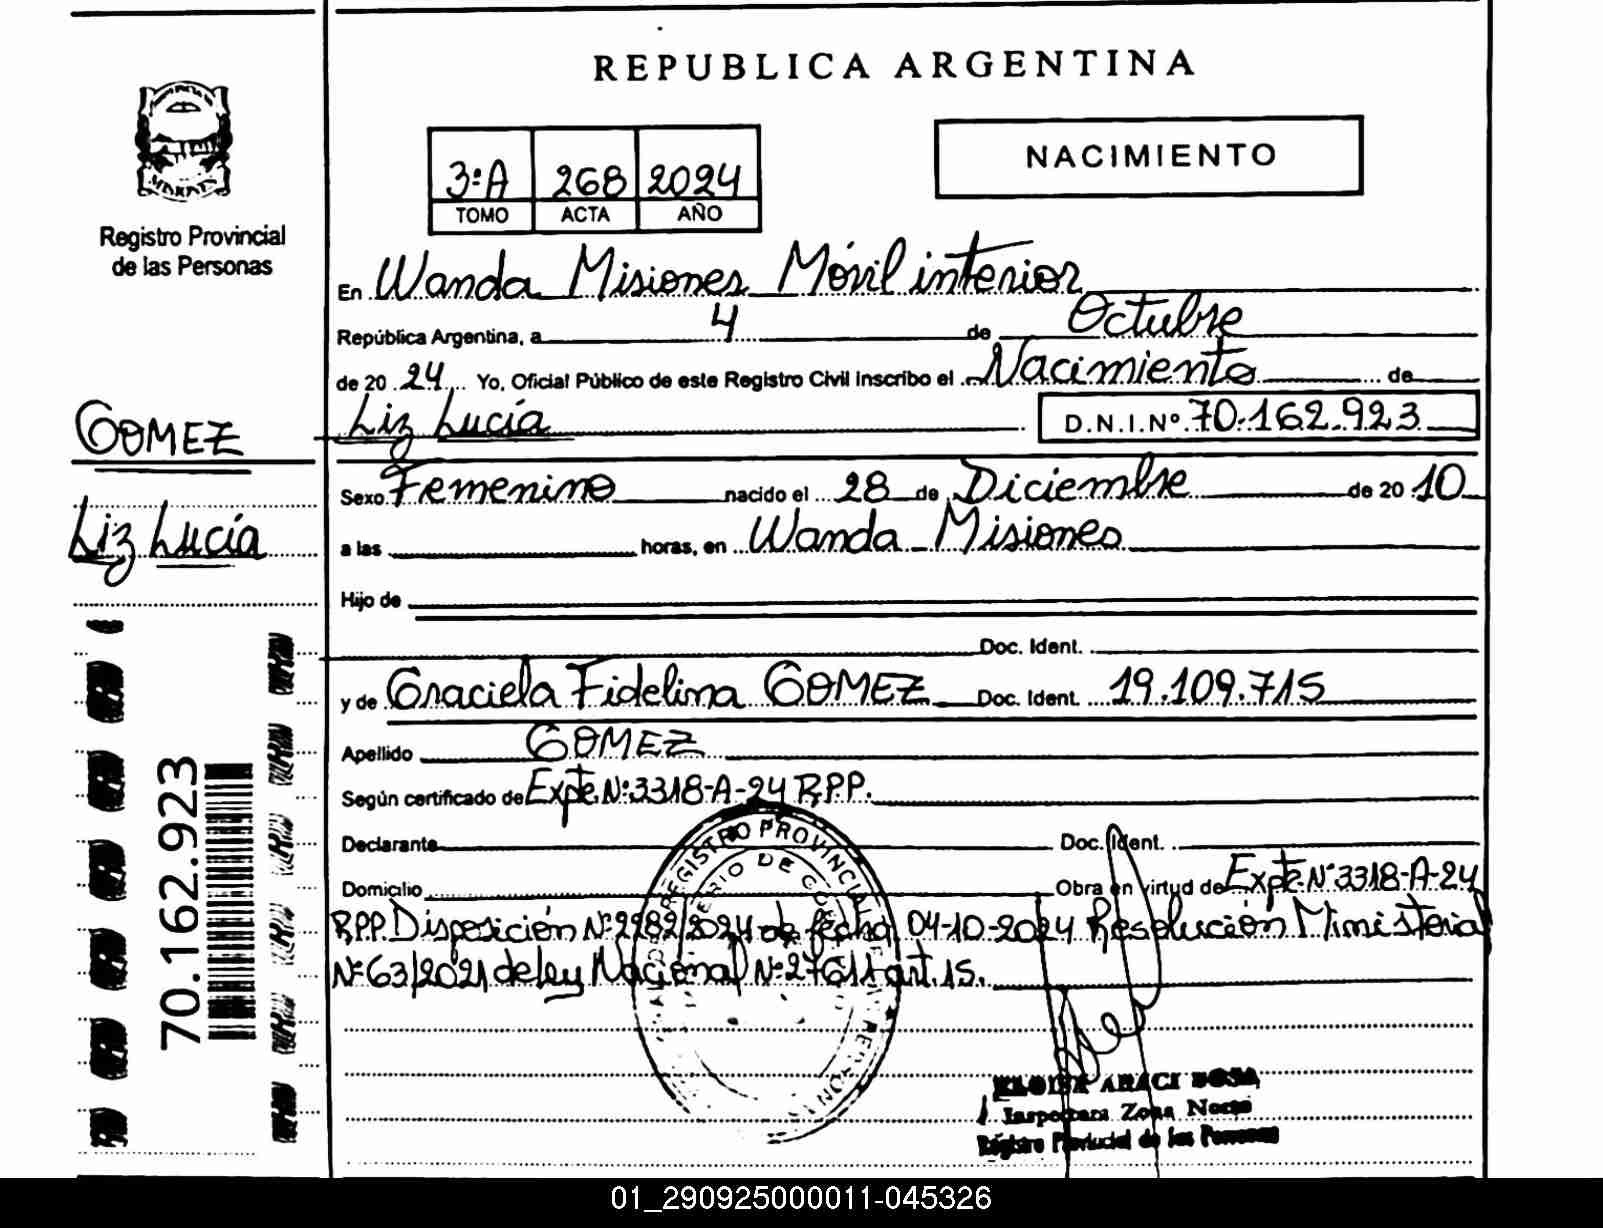 REPUBLICA ARGENTINA
NACIMIENTO
3ºA 268 2024
TOMO ACTA AÑO
Registro Provincial
de las Personas
En Wanda Misiones Móvil interior
República Argentina, a 4 de Octubre
de 20 24 Yo, Oficial Público de este Registro Civil inscribo el Nacimiento de
GOMEZ
Liz Lucía D.N.I.Nº 70.162.923
Sexo Femenino nacido el 28 de Diciembre de 20 10
Liz Lucía
a las horas, en Wanda Misiones
Hijo de
Doc. Ident.
y de Graciela Fidelina GOMEZ Doc. Ident. 19.109.715
Apellido GOMEZ
Según certificado de Expte Nº3318-A-24 R.P.P.
Declarante Doc. Ident.
Domicilio Obra en virtud de Expte Nº3318-A-24
RPP. Disposición Nº2282/2024 de fecha 04-10-2024 Resolución Ministerial
Nº63/2021 de ley Nacional Nº27611 art.15.
70.162.923
REGISTRO PROVINCIAL
ARACI
Inspectora Zona Norte
Registro Provincial de las Personas
01_290925000011-045326